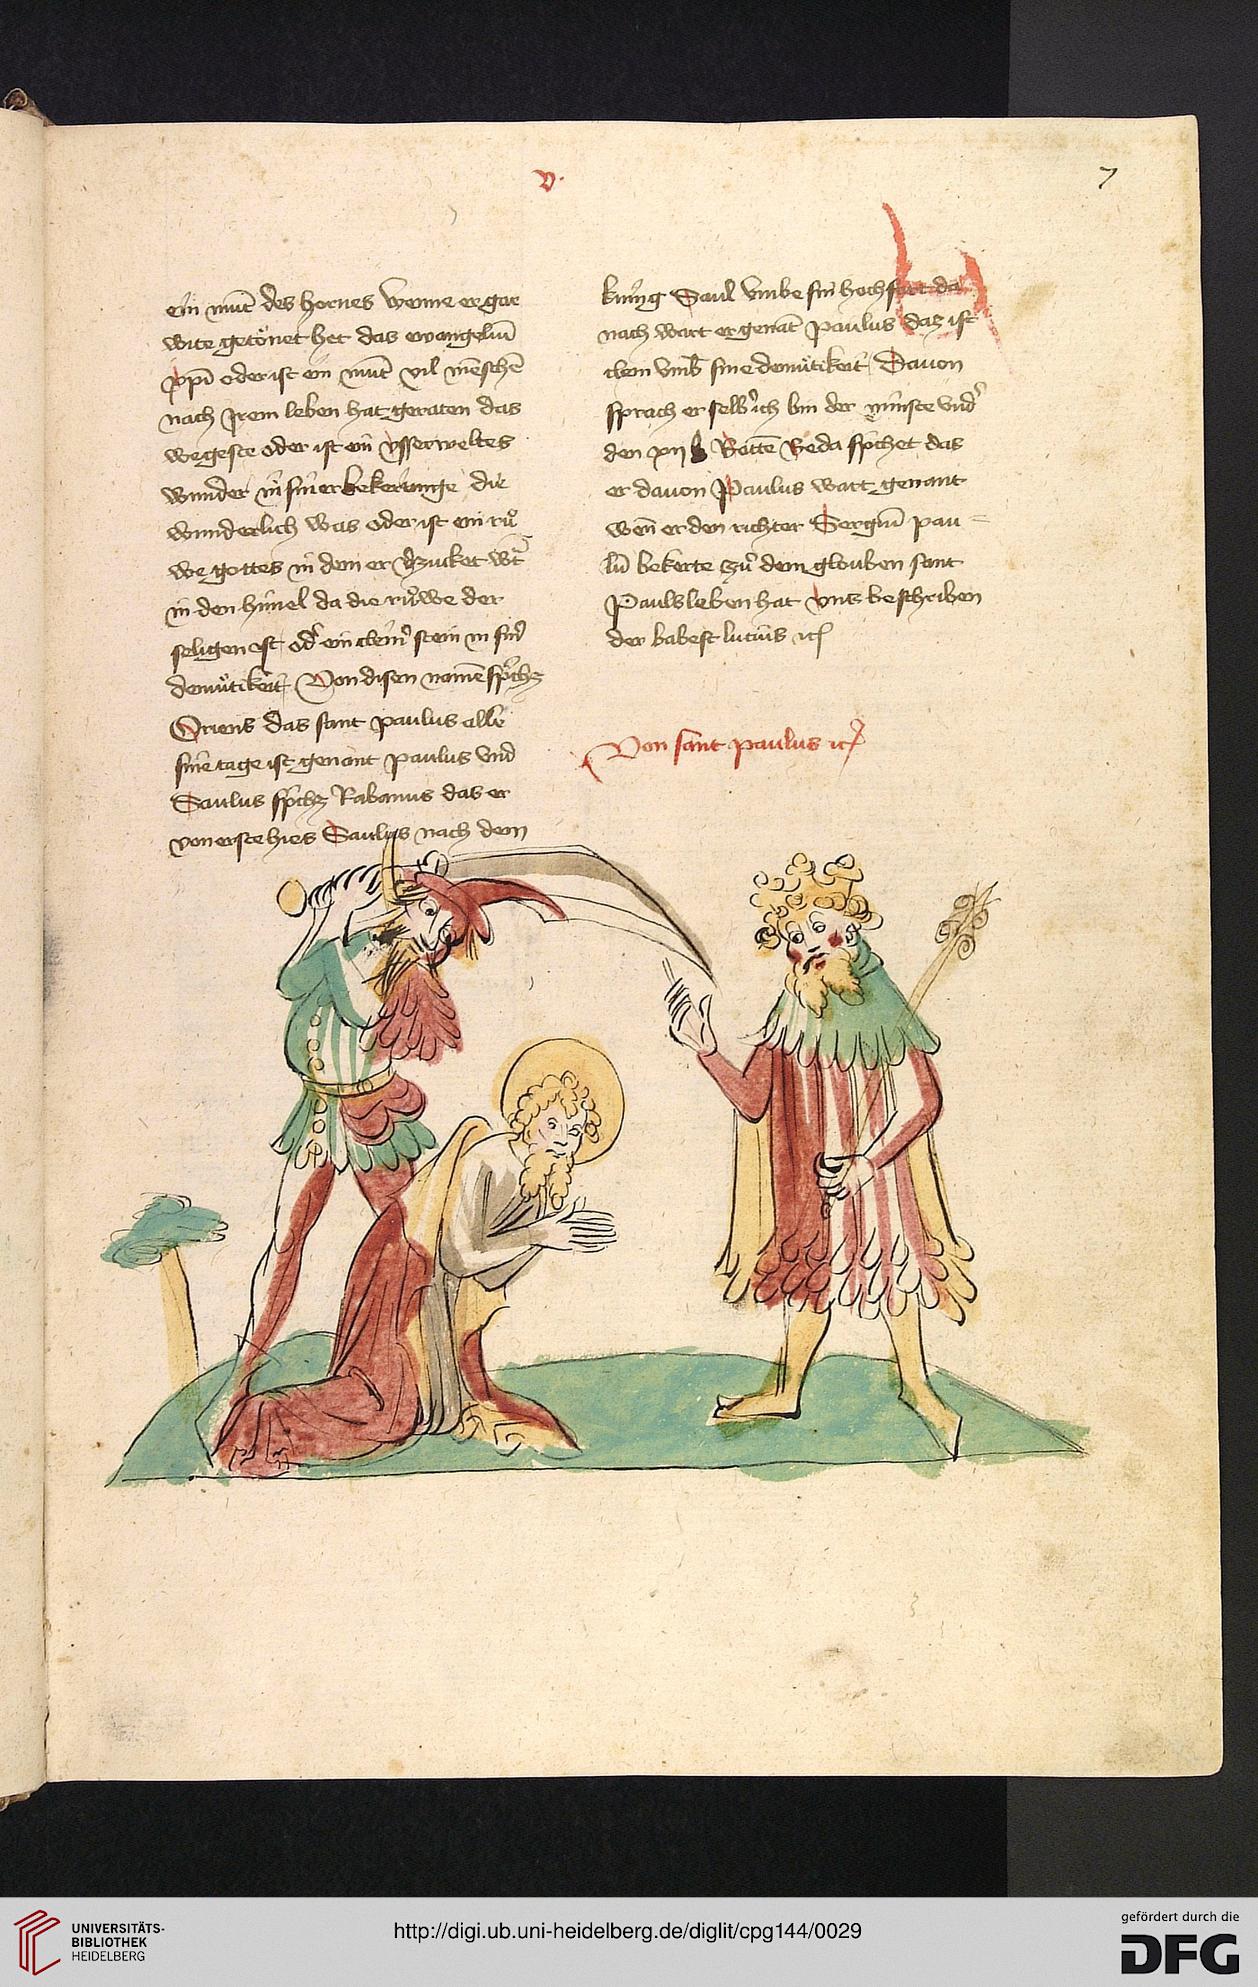 v.
7
ein mūt des hornes wenne er gar
wite getönet het das ewangeliū
xp̄i oder ist ein mūt vil mēschē
nach jrem leben hat geraten das
wegeste oder ist ein vsserweltes
wunder in siner bekerunge die
wunderlich was oder ist ein rů
we gottes in dem er v̓zucket wt̄
in den himel da die růwe der
seligen ist od̓ ein clein̓ stein in sin̓
demůtikeit Von disen namē sp̓chz
Oriens das sant paulus alle
sine tage ist genant paulus vnd
Saulus sp̓chz Rabanus das er
von erste hies Saulus nach dem
kunig Saul vmbe sin hochfart da
nach wart er genāt paulus daz ist
clein vmb sine demůtikeit Dauon
sprach er selb̓ ich bin der minste vnd̓
den xij botte Beda sp̓chet das
er dauon Paulus wart genant
wen̄ er den richter Sergiū pau=
lū bekerte zů dem glouben sant
Pauls leben hat vns beschriben
der babest lucius ꝛc̄
Von sant paulus ꝛc̄
UNIVERSITÄTS-
BIBLIOTHEK
HEIDELBERG
http://digi.ub.uni-heidelberg.de/diglit/cpg144/0029
gefördert durch die
DFG